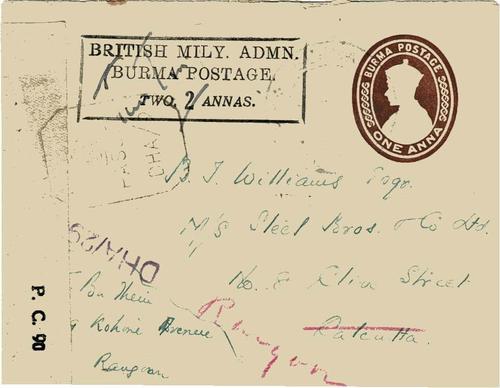 BRITISH MILY. ADMN.
BURMA POSTAGE.
TWO 2 ANNAS.
BURMA POSTAGE
ONE ANNA
PASS
DHA/
B. J. Williams Esqr.
M/s Steel Bros. & Co Ltd.
No. 8 Clive Street
Calcutta.
Rangoon
DHA/29
P. C. 90
Ba Thein
Kokine Avenue
Rangoon